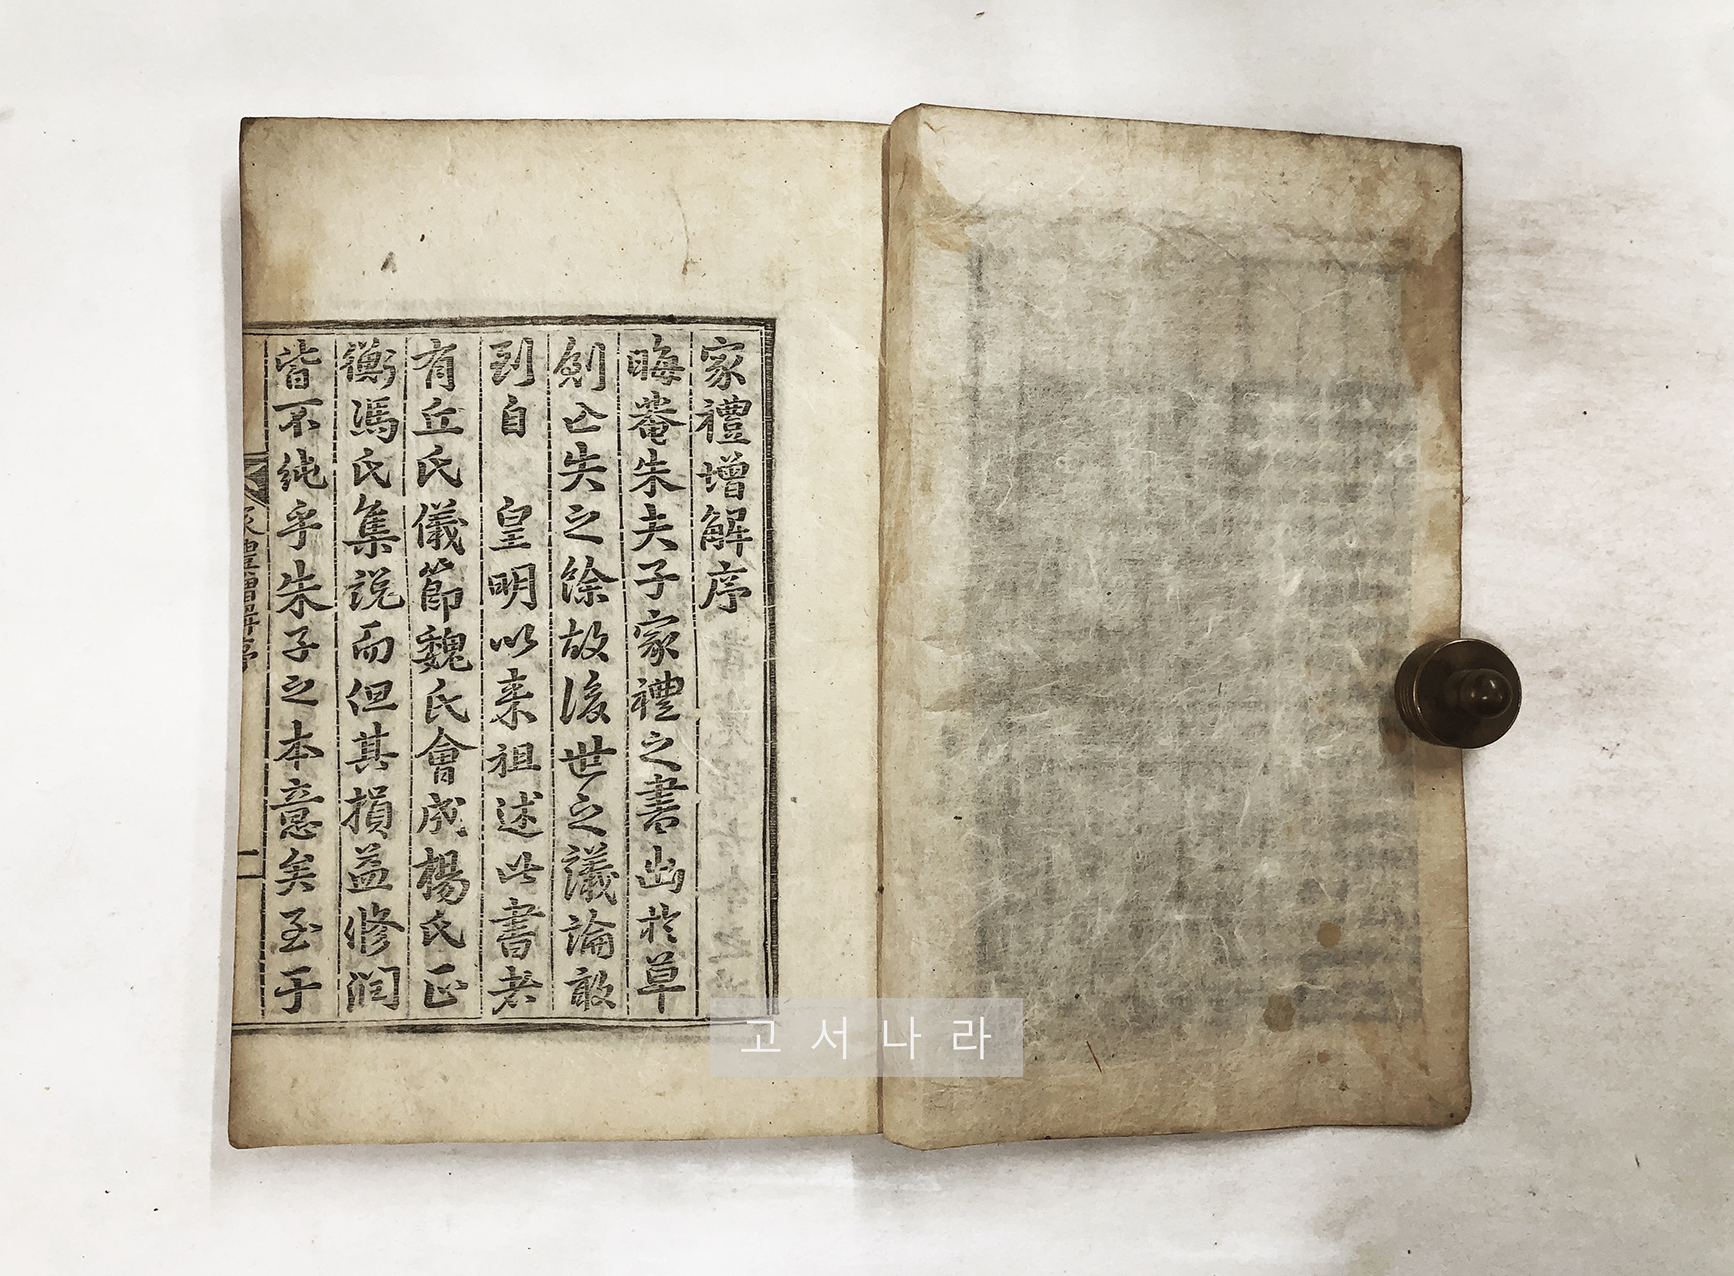 家禮增解序
晦菴朱夫子家禮之書出於草
創亡失之餘故後世之議論敢
到自 皇明以来祖述此書者
有丘氏儀節魏氏會成楊氏正
衡馮氏集説而但其損益修潤
皆不純乎朱子之本意矣至于
家禮增解序
一
고서나라